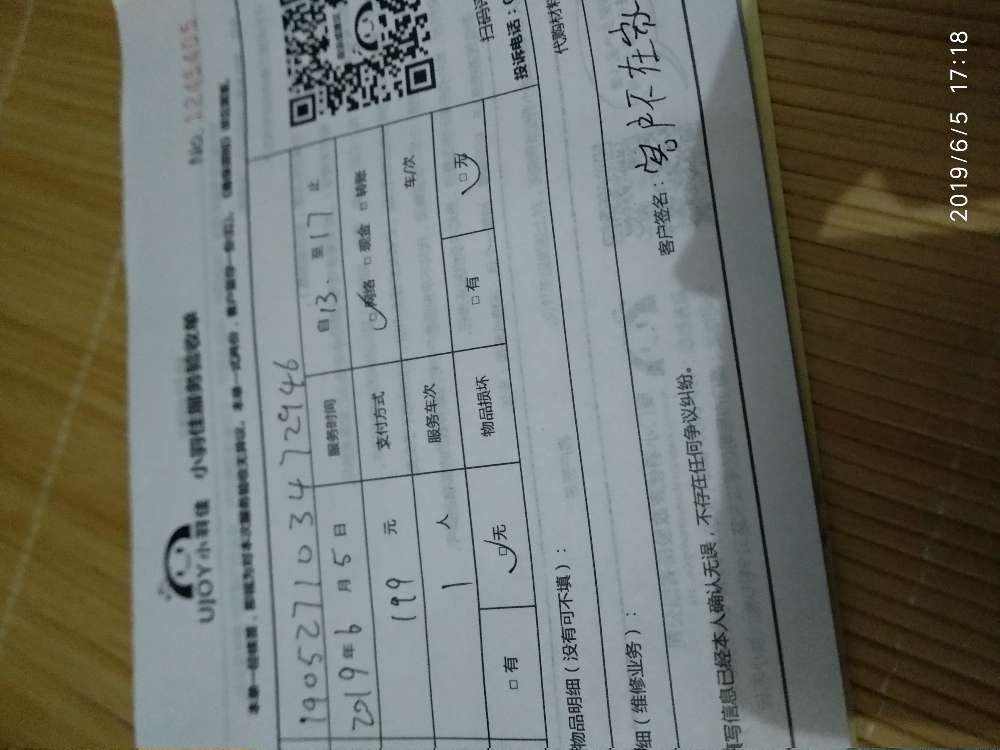 No. 1245405
UJOY小羽佳 小羽佳服务验收单
190527103472946
2019年6月5日 服务时间 自13. 至17止
199元 支付方式 ☑网络 □现金 □转账
1人 服务车次 车/次
□有 ☑无 物品损坏 □有 ☑无
投诉电话：0
物品明细（没有可不填）：
代购材料
细（维修业务）：
填写信息已经本人确认无误，不存在任何争议纠纷。
客户签名：客户不在家
2019/6/5 17:18